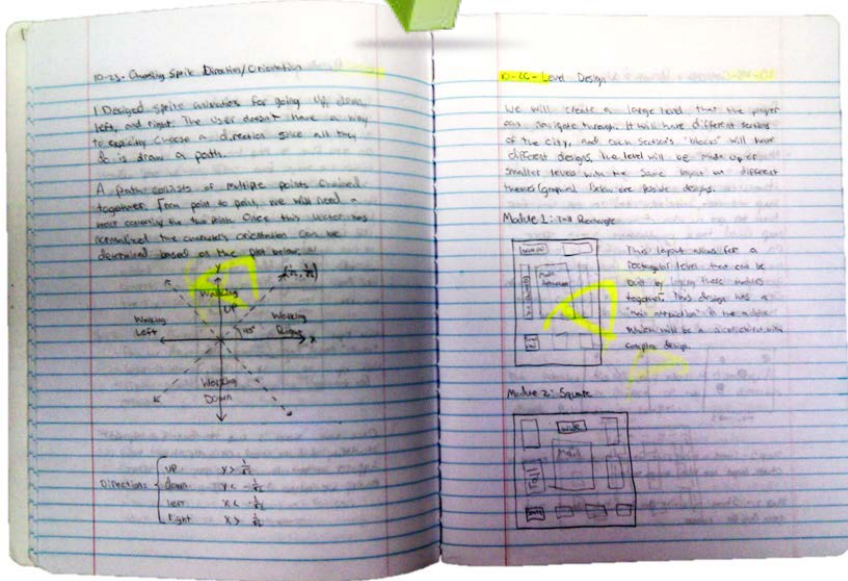 10-25- Choosing Sprite Direction/Orientation
I Designed sprite animations for going up, down,
left, and right. The user doesn't have a way
to choose a direction since all they
do is draw a path.
A path consists of multiple points
together. From point to point, we will need a
vector connecting the two points. Once this vector has
normalized the character's orientation can be
determined based on the plot below.
y
(1/√2, 1/√2)
Walking
UP
Walking
Left
Walking
Right
45°
x
Walking
Down
Directions
up y > 1/√2
down y < -1/√2
left x < -1/√2
right x > 1/√2
10-26- Level Design
We will create a large level that the player
can navigate through. It will have different sections
of the city, and each section's "blocks" will have
different designs. The level will be made up of
smaller levels with the same layout but different
themes/graphics. Below are possible designs.
Module 1: Tall Rectangle
Main
This layout allows for a
rectangular level that can be
built by these modules
together. This design has a
"main attraction" in the middle
which will be a with
complex design.
Module 2: Square
Wide
Main
Tall